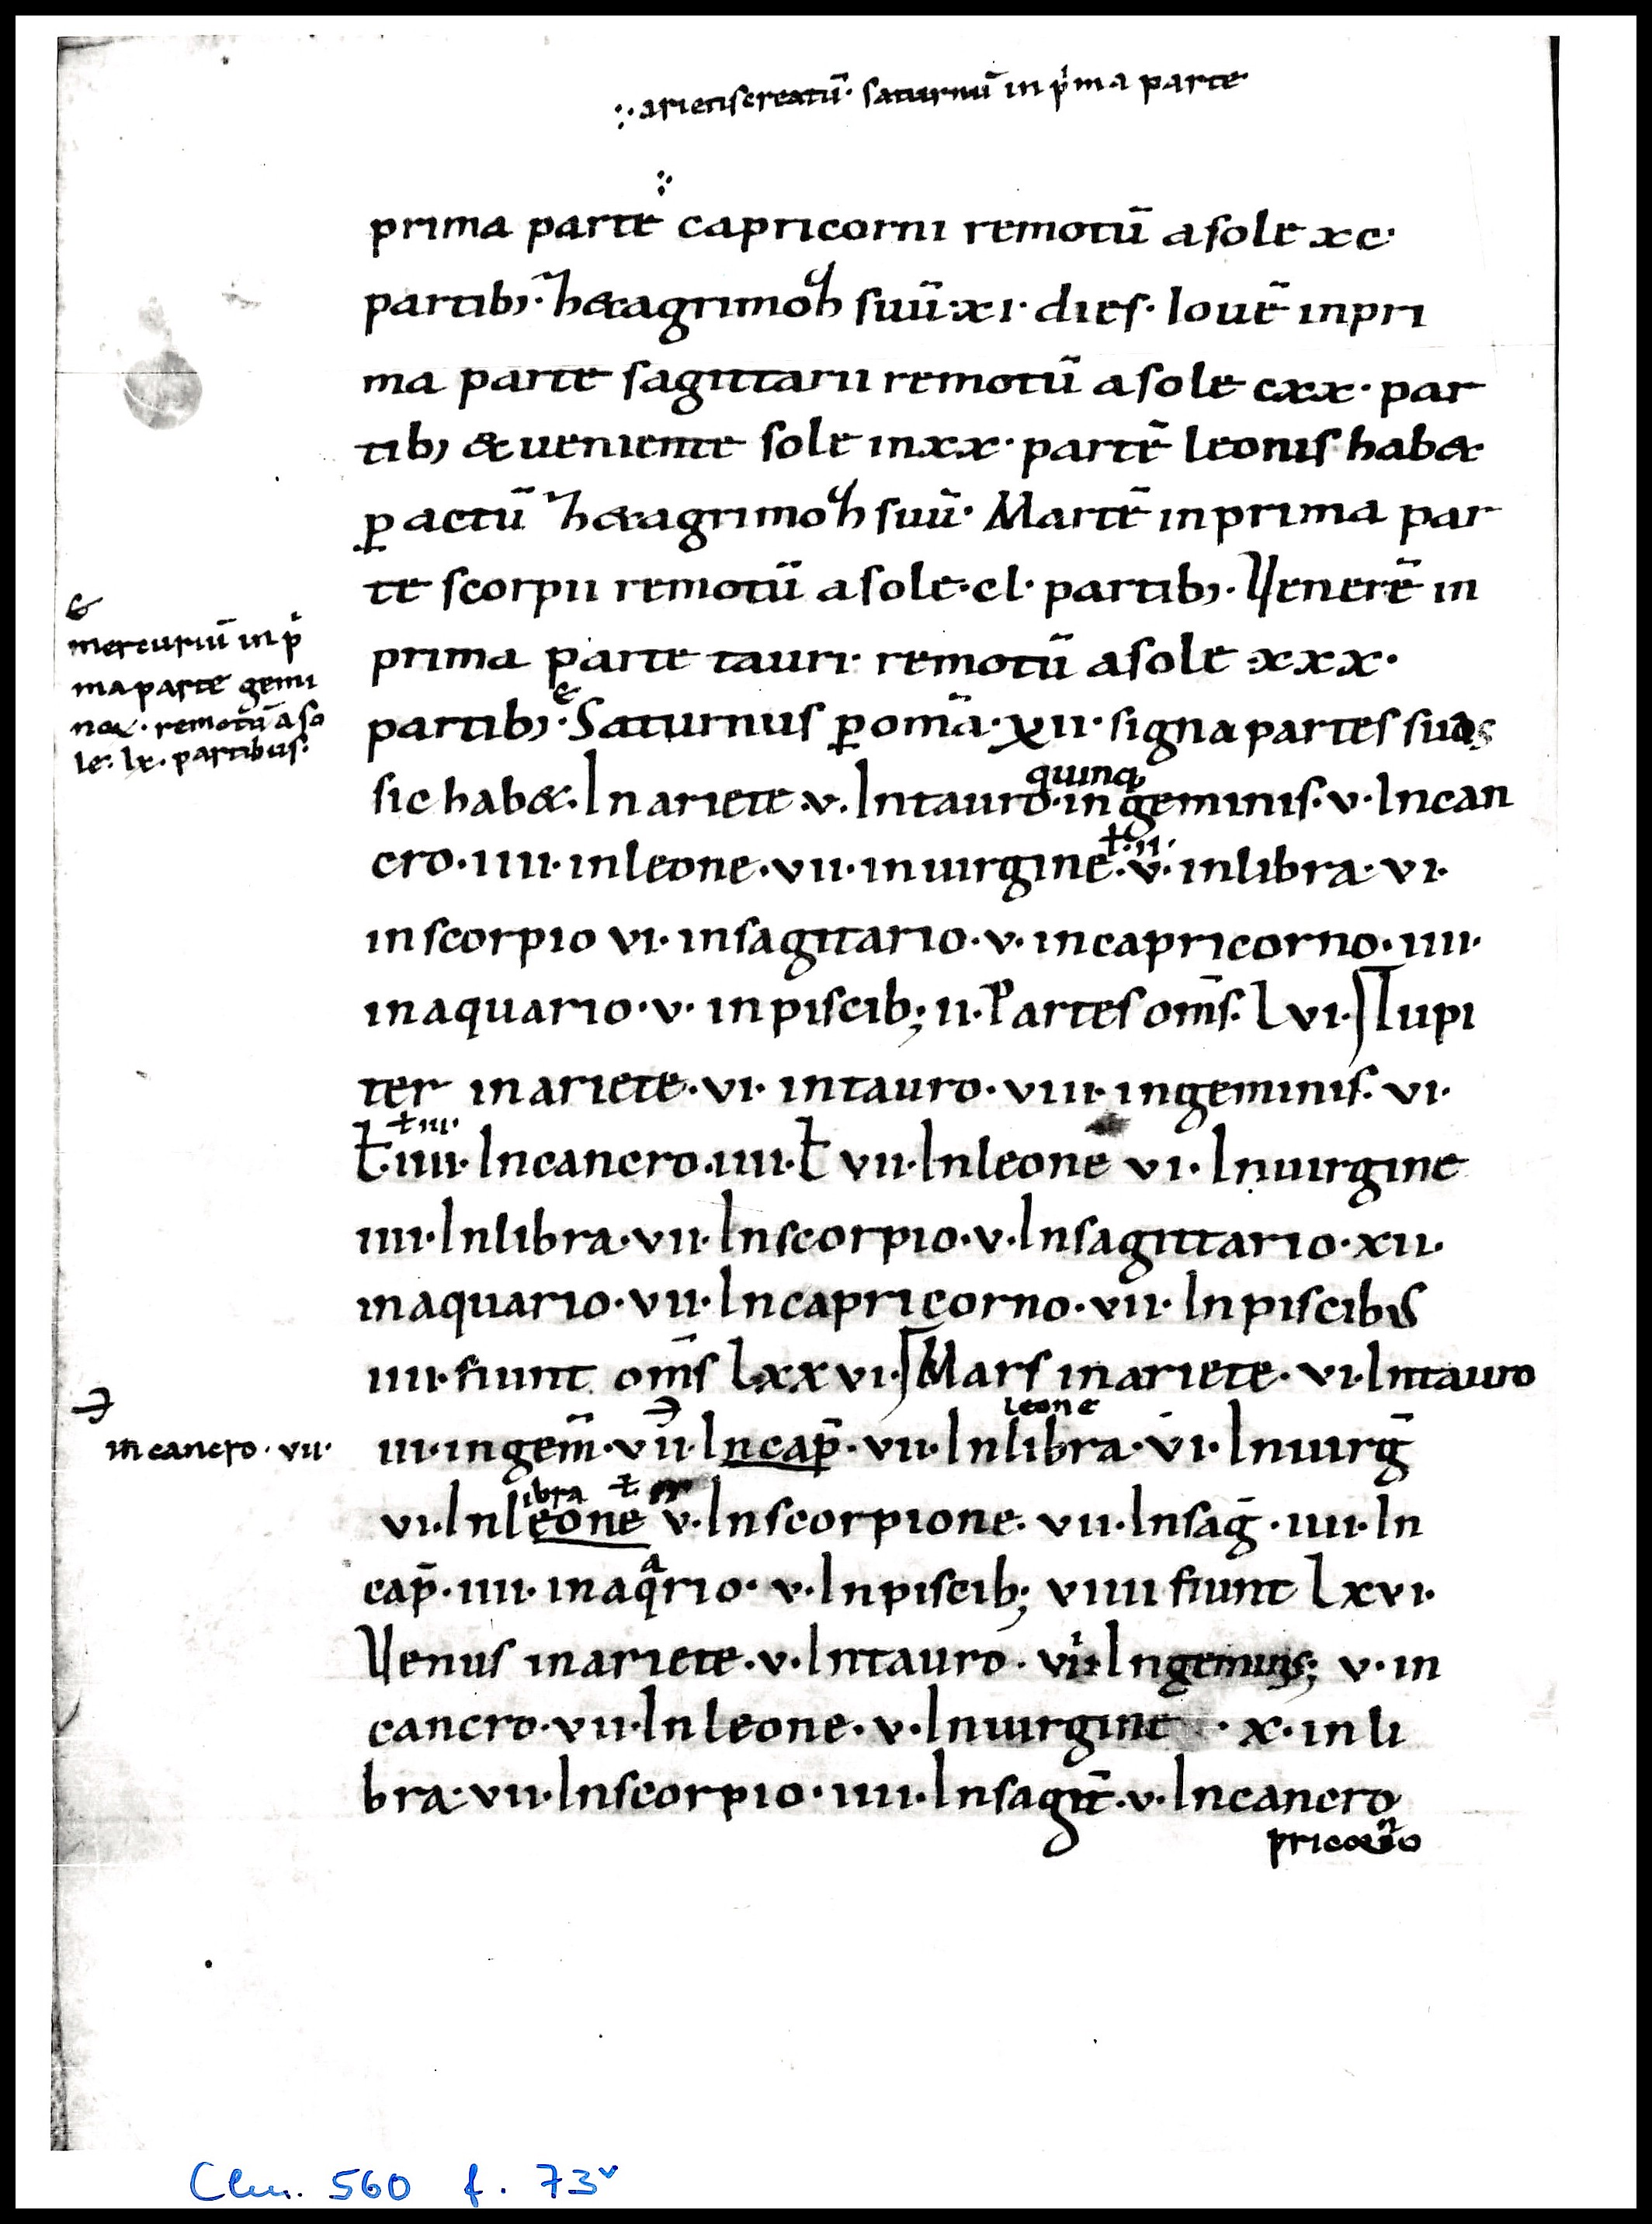 ∴ arietis creatū· saturnū in pͥma parte·
prima parte ∴ capricorni remotū a sole xc·
partib; · hexagrimoħ suū· xi· dies· Iouē in pri
ma parte sagittarii remotū a sole cxx· par
tib; & ueniente sole in xx· partē leonis hab&
ꝑactū hexagrimoħ suū· Martē in prima par
te scorpii remotū a sole· cl· partib;· Venerē in
&
mercuriū in pͥ
ma parte gemi
noꝝ· remotū a so
le· lx· partibus·
prima parte tauri· remotū a sole· xxx·
partib;· & Saturnus ꝑ om̄a· xii· signa partes suas
quinq;
sic hab&· In ariete· v· In tauro· in geminis· v· In can
ł· ii·
cro· iiii· in leone· vii· in uirgine· v· in libra· vi·
in scorpio vi· in sagitario· v· in capricorno· iiii·
in aquario· v· in piscib; ii· Partes om̄s· Lvi· Iupi
ter in ariete· vi· in tauro· viii· in geminis· vi·
ł iii·
ł· iiii· In cancro· iiii· ł vii· In leone vi· In uirgine
iiii· In libra· vii· In scorpio· v· In sagittario· xii·
in aquario· vii· In capricorno· vii· In piscibus
iiii· fiunt om̄s Lxxvi· Mars in ariete· vi· In tauro
leone
in cancro· vii·
iii· in gem̄· vii· In cap̄· vii· In libra· vi· In uirḡ
ibra ł
vi· In leone v· In scorpione· vii· In saḡ· iiii· In
cap̄· iiii· in aqᵃrio· v· In piscib; viiii fiunt Lxvi·
Venus in ariete· v· In tauro· vii· In geminis; v· in
cancro· vii· In leone· v· In uirgine · x· in li
bra· vii· In scorpio· iiii· In sagit̄· v· In cancro
pricorno
Clm. 560 f. 73ᵛ